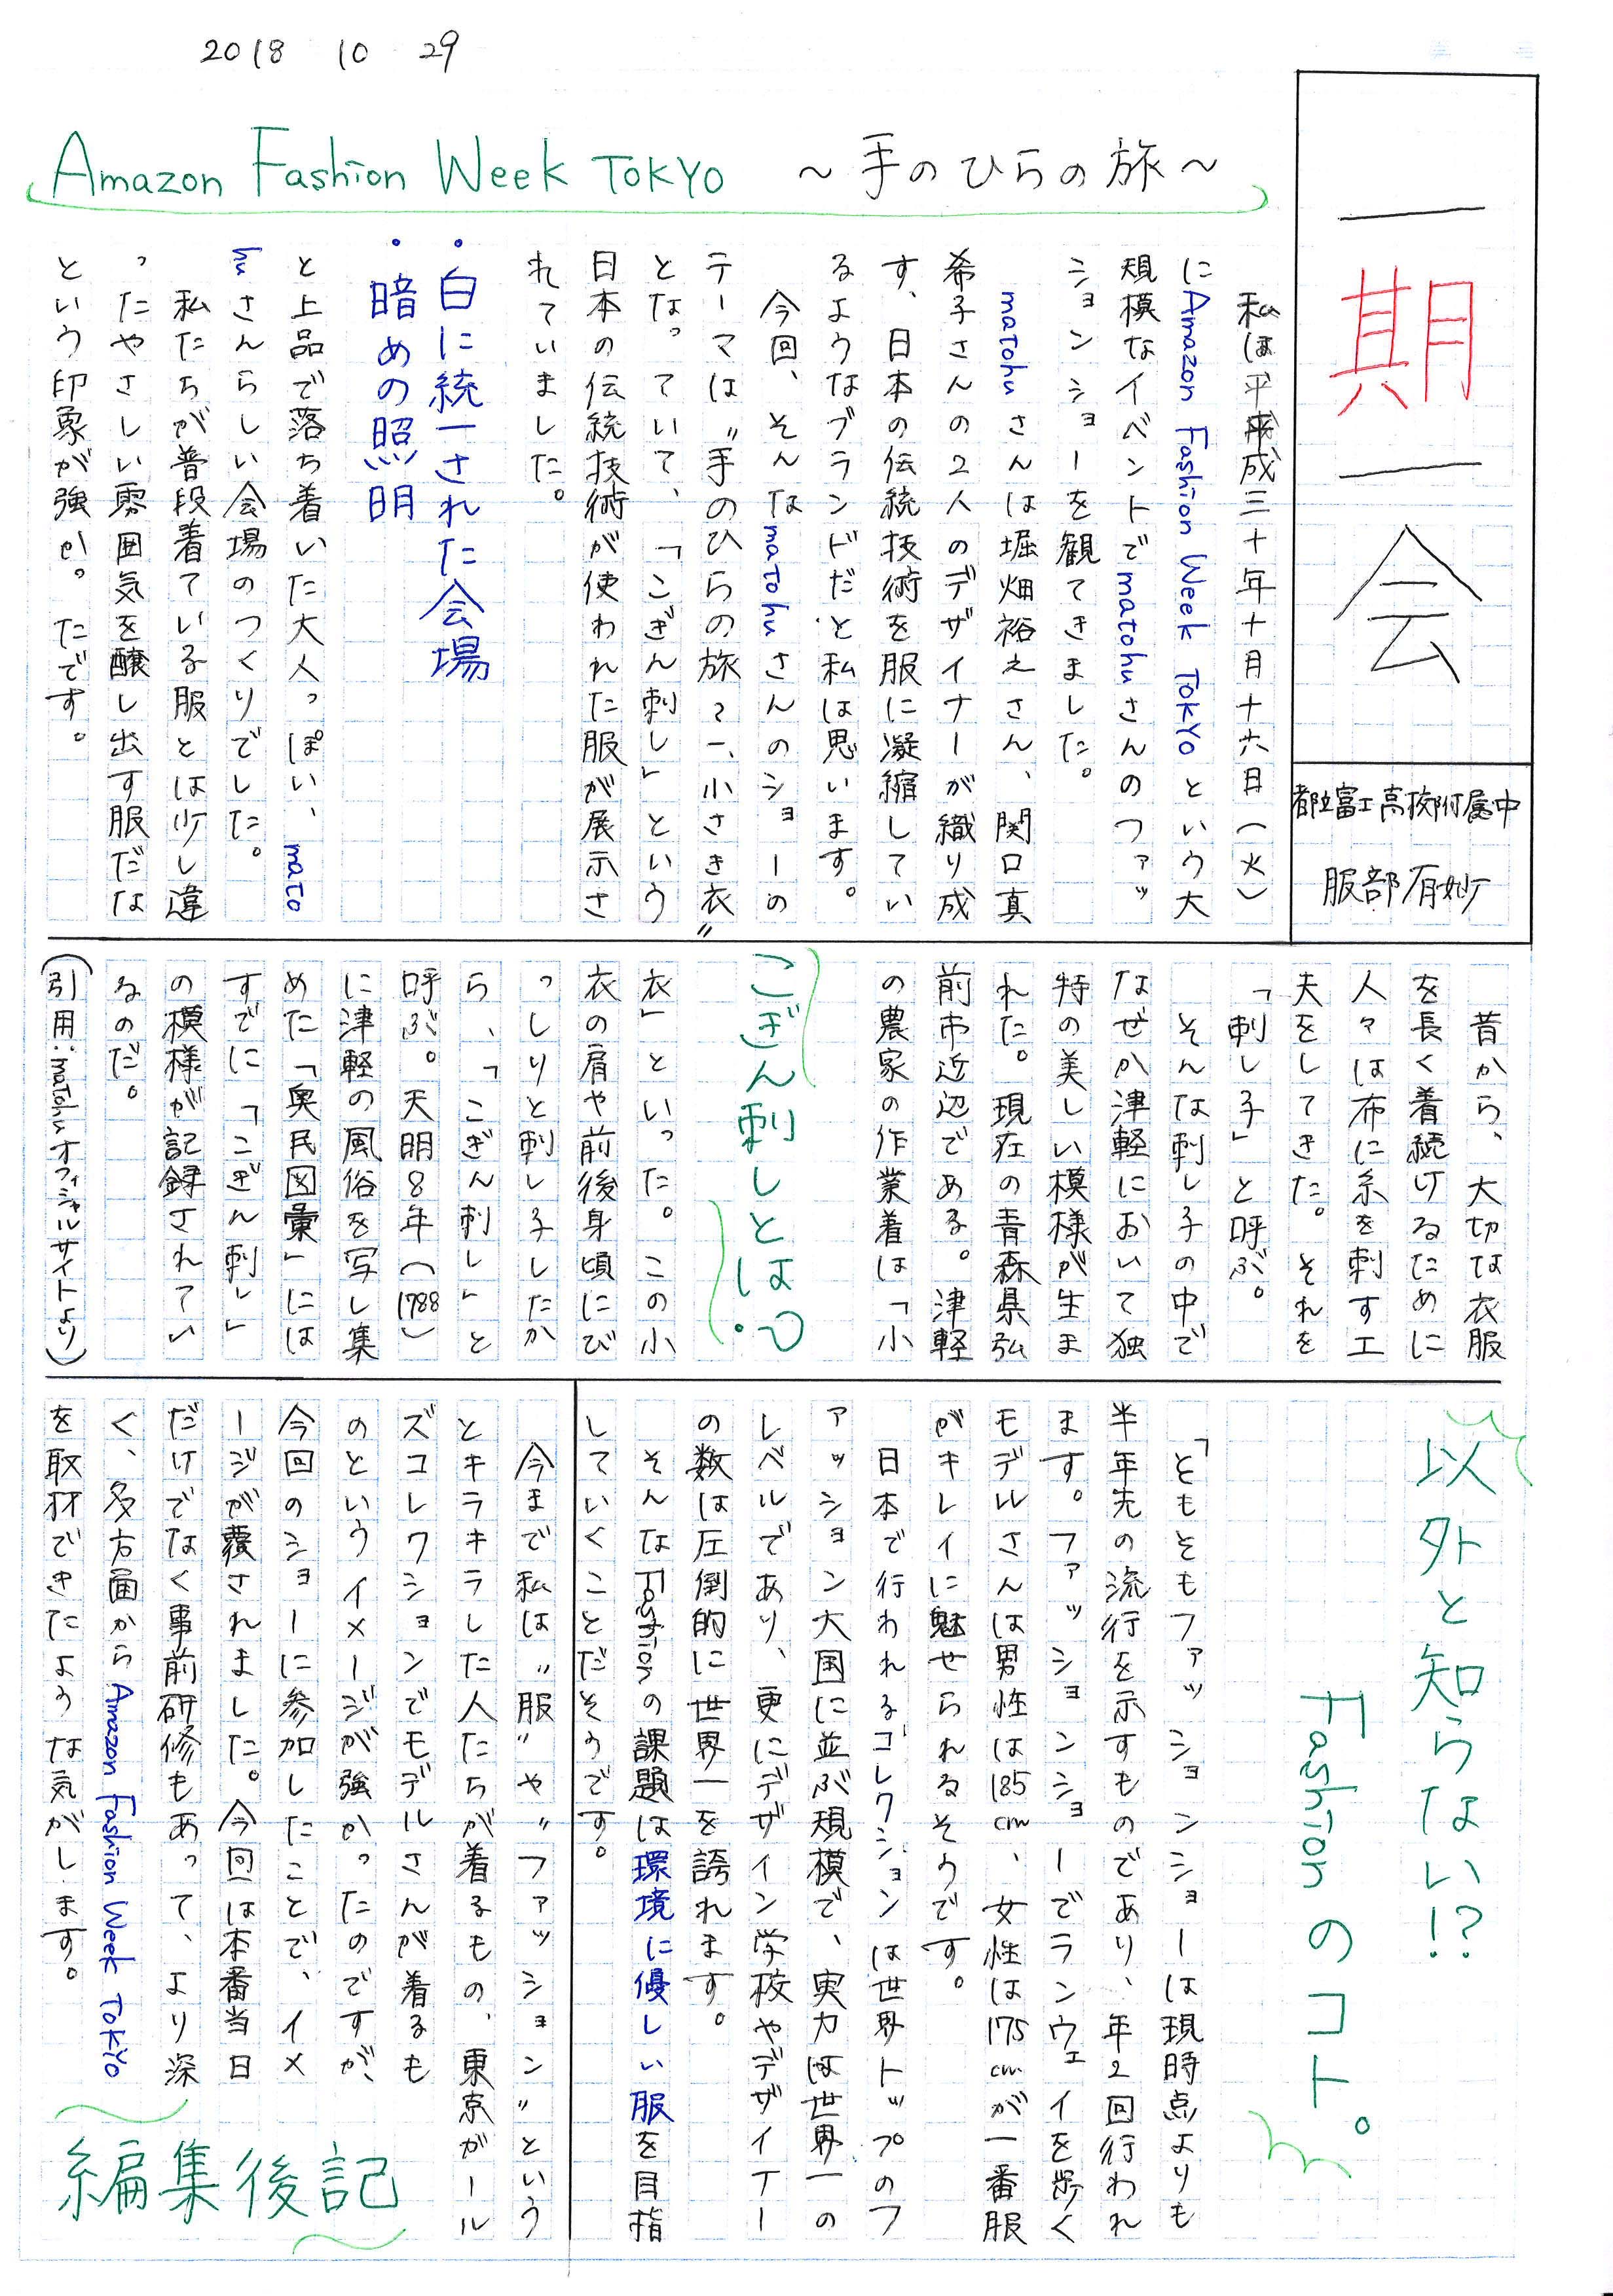 2018 10 29
一期一会
都立富士高校附属中
服部有妙
Amazon Fashion Week TOKYO ～手のひらの旅～
私は平成三十年十月十六日（火）
にAmazon Fashion Week TOKYOという大
規模なイベントでmatohuさんのファッ
ションショーを観てきました。
matohuさんは堀畑裕之さん、関口真
希子さんの2人のデザイナーが織り成
す、日本の伝統技術を服に凝縮してい
るようなブランドだと私は思います。
今回、そんなmatohuさんのショーの
テーマは〝手のひらの旅〜一、小さき衣〟
となっていて、「こぎん刺し」という
日本の伝統技術が使われた服が展示さ
れていました。
・白に統一された会場
・暗めの照明
と上品で落ち着いた大人っぽい、mato
huさんらしい会場のつくりでした。
私たちが普段着ている服とは少し違
ったやさしい雰囲気を醸し出す服だな
という印象が強かったです。
昔から、大切な衣服
を長く着続けるために
人々は布に糸を刺す工
夫をしてきた。それを
「刺し子」と呼ぶ。
そんな刺し子の中で
なぜか津軽において独
特の美しい模様が生ま
れた。現在の青森県弘
前市近辺である。津軽
の農家の作業着は「小
こぎん刺しとは？
衣」といった。この小
衣の肩や前後身頃にび
っしりと刺し子したか
ら、「こぎん刺し」と
呼ぶ。天明8年（1788）
に津軽の風俗を写し集
めた「奥民図彙」には
すでに「こぎん刺し」
の模様が記録されてい
るのだ。
（引用：matohuオフィシャルサイトより）
以外と知らない!?
Fashionのコト。
「ともそもファッションショーは現時点よりも
半年先の流行を示すものであり、年2回行われ
ます。ファッションショーでランウェイを歩く
モデルさんは男性は185cm、女性は175cmが一番服
がキレイに魅せられるそうです。
日本で行われるコレクションは世界トップのフ
ァッション大国に並ぶ規模で、実力は世界一の
レベルであり、更にデザイン学校やデザイナー
の数は圧倒的に世界一を誇れます。
そんなFashionの課題は環境に優しい服を目指
していくことだそうです。
今まで私は〝服〟や〝ファッション〟という
とキラキラした人たちが着るもの、東京ガール
ズコレクションでモデルさんが着るも
のというイメージが強かったのですが、
今回のショーに参加したことで、イメ
ージが覆されました。今回は本番当日
だけでなく事前研修もあって、より深
く、多方面からAmazon Fashion Week TOKYO
を取材できたような気がします。
編集後記